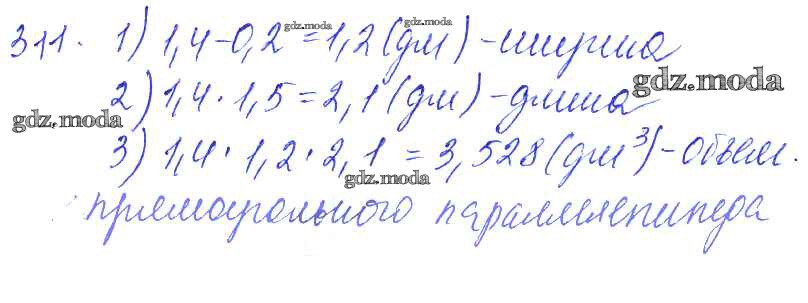 311. 1) 1,4-0,2=1,2(дм)-ширина
2) 1,4·1,5=2,1(дм)-длина
3) 1,4·1,2·2,1=3,528(дм³)-объем.
прямоугольного параллелепипеда
gdz.moda
gdz.moda
gdz.moda
gdz.moda
gdz.moda